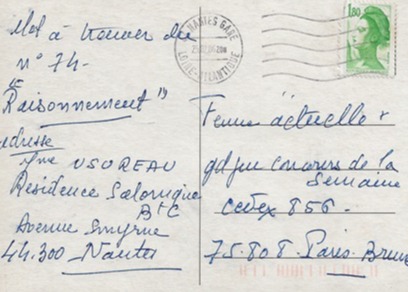 Mot à trouver du
n° 74-
"Raisonnement"
adresse
Mme USUREAU
Résidence Salonique
Bt C
Avenue Smyrne
44.300 Nantes
NANTES GARE
LOIRE-ATLANTIQUE
1,80
Femme actuelle
gd jeu concours de la
Semaine
Cedex 856-
75-808-Paris-Brune